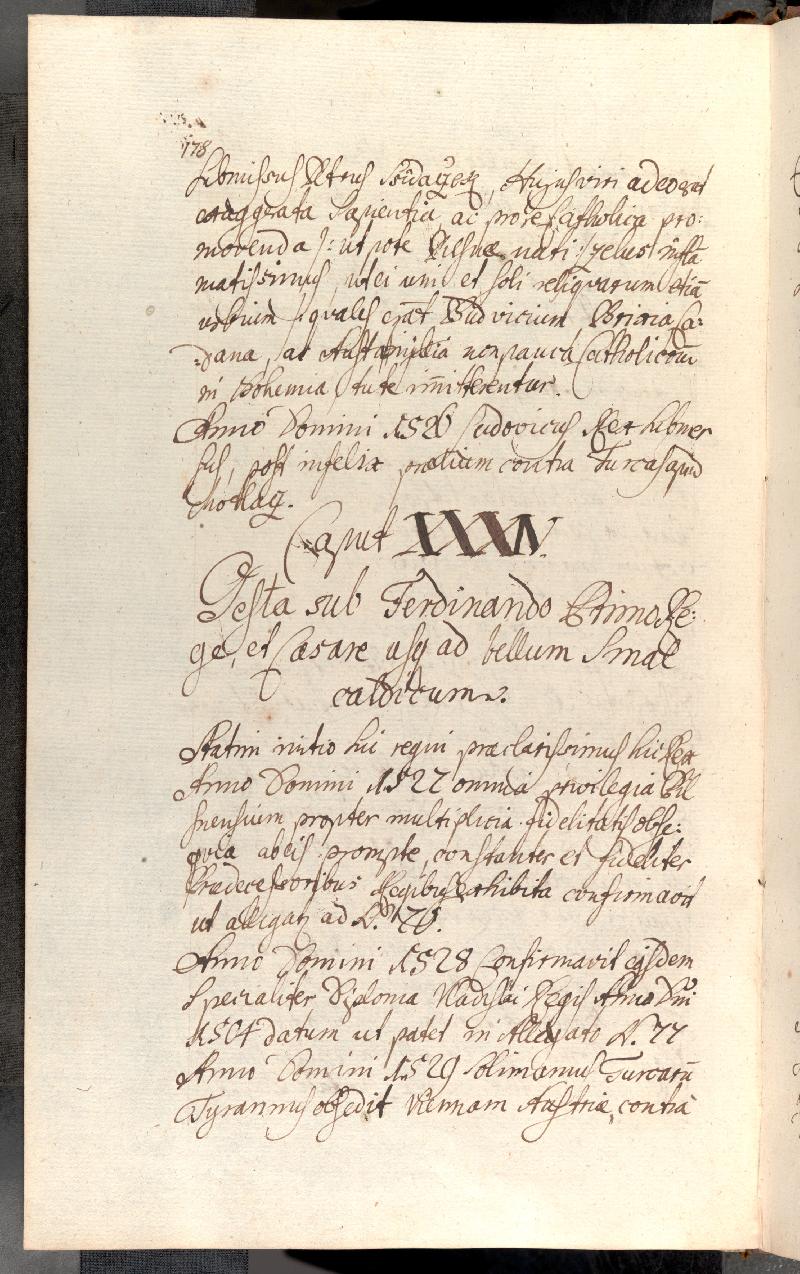 178
submissus Petrus Hujus viri adeo erat
exaggerata Sapientia ac pro re Catholica pro:
movenda /: ut pote Pilsnæ nati :/ zelus infla
matissimus, ut ei uni et soli reliquarum etiã
urbium /: quales erãt Budvicium Ca:
dana, ac non pauca Catholicorũ
in Bohemia tute im̃itterentur.
Anno Domini 1526 Ludovicus Rex submer
sus, post infelix prælium contra Turcas apud
Mohaz.
Caput XXXIV.
Gesta sub Ferdinando Primo Re:
ge, et Cæsare usq ad bellum Smal
caldicum.
Statim initio sui regni præclarissimus hic Rex
Anno Domini 1527 omnia privilegia Pil
snensium propter multiplicia fidelitatis obse:
quia ab eis prompte, constanter et fideliter
Prædecessoribus Regibus exhibita confirmavit
ut allegat ad N. 76.
Anno Domini 1528 Confirmavit eisdem
specialiter Diploma Vladislai Regis Anno Dni
1504 datum ut patet in Allegato N. 77
Anno Domini 1529 Solimannus Turcarũ
Tyrannus obsedit Viennam Austriæ, contra